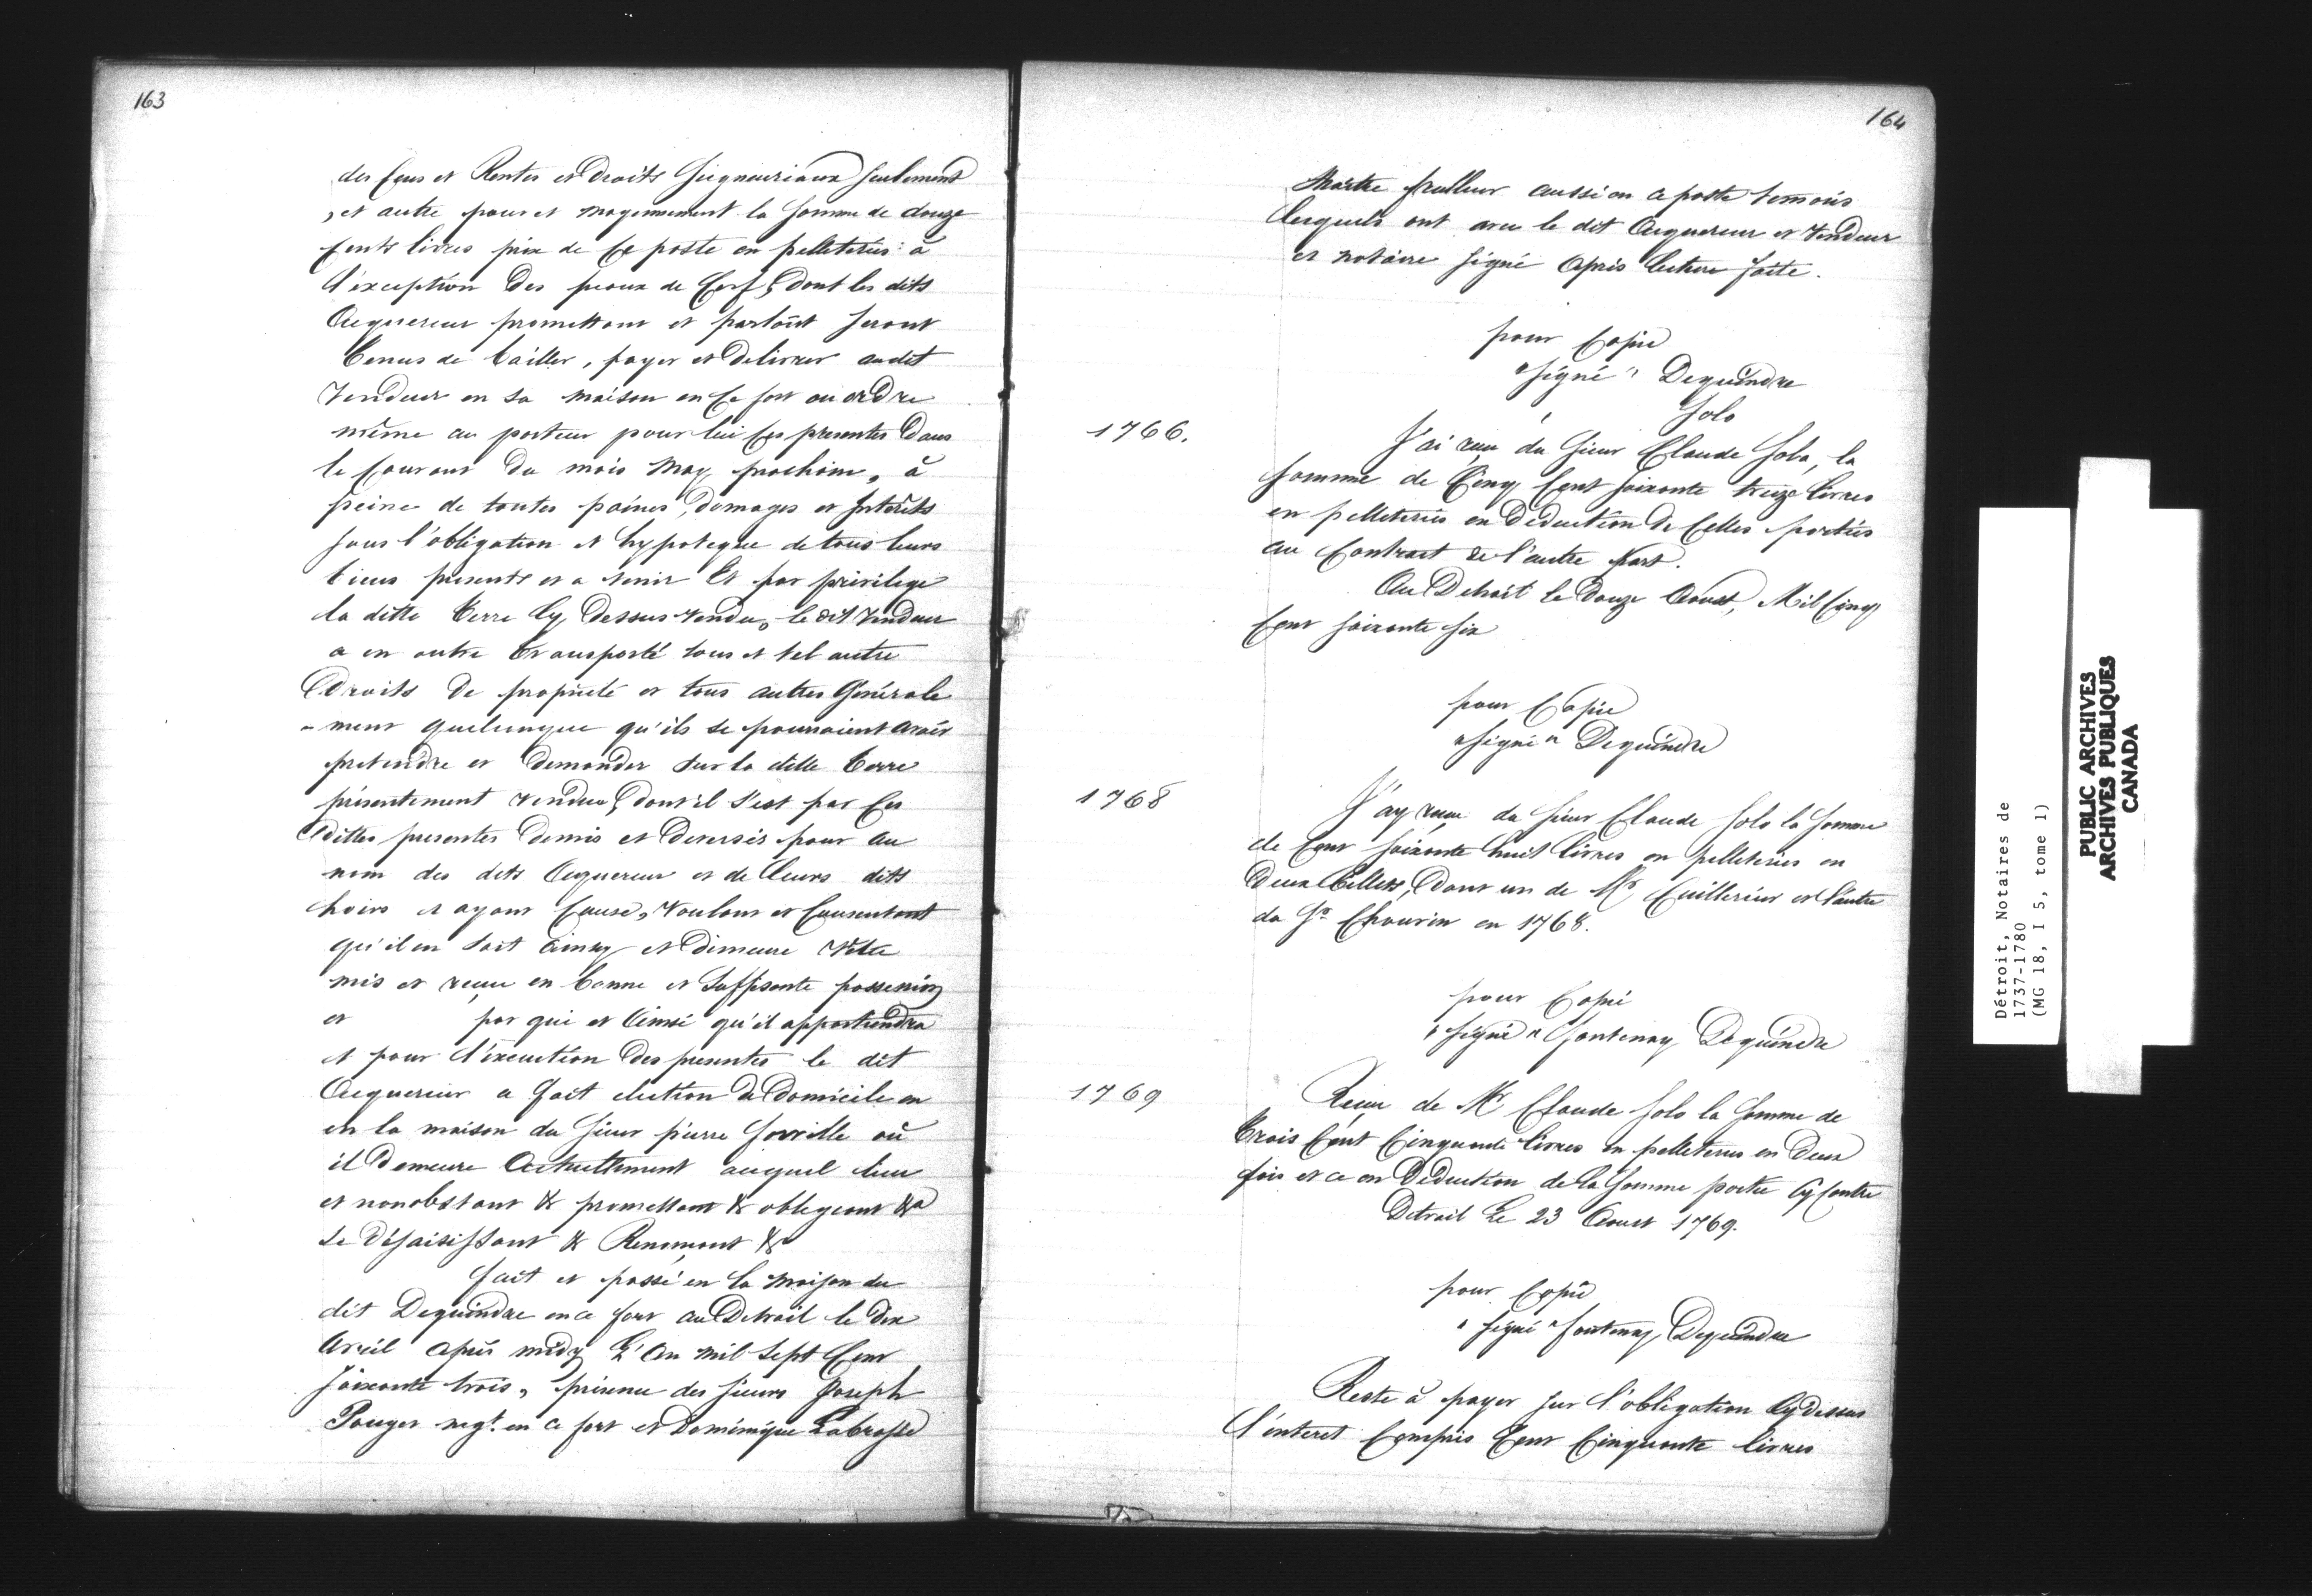 163
des Cens et Rentes et Droits Seigneuriaux Seulement
, et autre pour et moyennement la Somme de douze
Cents livres prix de Ce poste en pelleteries à
l'éxception Des peaux de Cerf, Dont les dits
Acquereur promettent et seront
tenus de bailler, payer et Delivrer audit
Vendeur en sa maison en Ce fort ou ordre
même au porteur pour lui Ces presentes Dans
le Courant Du mois May prochain, à
peine de toutes paines, domages et Intérêts
sous l'obligation et hypoteque de tous leurs
biens presents et a venir Et par privilege
la ditte terre Cy Dessus vendu, le dit Vendeur
a en outre transporté tous et tel autre
Droits De propriété et tous autres Générale
-ment quelconque qu'ils se pourraient avoir
pretendre et Demander sur la ditte terre
présentement vendue, dont il s'est par Ces
Dittes presentes Demis et Deversis pour au
nom des dits Acquereur et de Leurs dits
hoirs et ayant Cause, Voulant et Consentant
qu'il en soit Ainsy et Dimeure
mis et recue en bonne et Suffisante possession
et par qui et Ainsi qu'il appartiendra
et pour l'éxecution Des presentes le dit
Acquereur a fait election De Domicile en
en la maison du Sieur pierre où
il Demeure Actuellement auquel lieu
et nonobstant & promettant & obligeant &a
Se Désaisissant & Renonçant &
fait et passé en la Maison du
dit Dequindre en ce fort au Detroit le Dix
Avril après midy L'An mil Sept Cent
Soixante trois, présence des Sieurs Joseph
Pouget negt. en ce fort et Dominique Labrosse
164
Maitre aussi en ce poste temoins
lesquels ont avec le dit Acquereur et Vendeur
et notaire Signé Après lecture faite.
pour Copie
"Signé" Dequindre
Solo
1766.
J'ai reçu du Sieur Claude Solo, la
Somme de Cinq Cent Soixante treize livres
en pelleteries en Deduction De Celles portées
au Contract de l'autre part.
Au Detroit le Douze Aoust, Mil Cinq
Cent Soixante Six
pour Copie
"Signé" Dequindre
1768
J'ay reçu du Sieur Claude Solo la Somme
de Cent Soixante huit livres en pelleteries en
Deux Billets, Dont un de Mr. Cuillerier et l'autre
du Sr. Chauvin en 1768.
pour Copie
"Signé" Fontenay Dequindre
1769
Reçu de Mr Claude Solo la Somme de
Trois Cent Cinquante livres en pelleteries en Deux
fois et ce en Déduction de la Somme portée Cy Contre
Detroit Le 23 Aoust 1769.
pour Copie
"Signé" Fontenay Dequindre
Reste à payer sur l'obligation Cy dessus
l'interet Compris Cent Cinquante livres
Détroit, Notaires de
1737-1780
(MG 18, I 5, tome 1)
PUBLIC ARCHIVES
ARCHIVES PUBLIQUES
CANADA